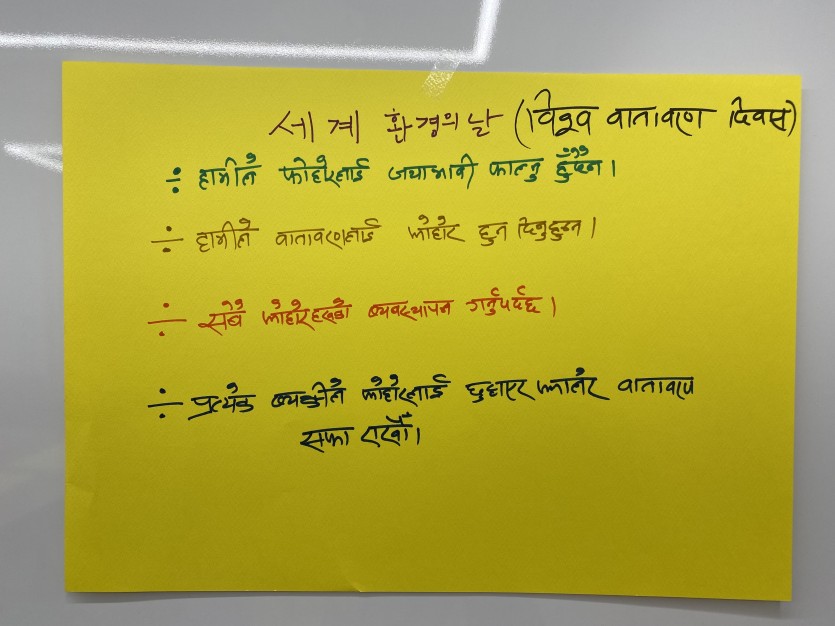 세계 환경의 날 (विश्व वातावरण दिवस)
÷ हामीले फोहोरलाई जथाभावी फाल्नु हुँदैन।
÷ हामीले वातावरणलाई फोहोर हुन दिनुहुन्न।
÷ सबै फोहोरहरूको व्यवस्थापन गर्नुपर्दछ।
÷ प्रत्येक व्यक्तीले फोहोरलाई छुट्टाएर फालेर वातावरण
सफा राखौं।